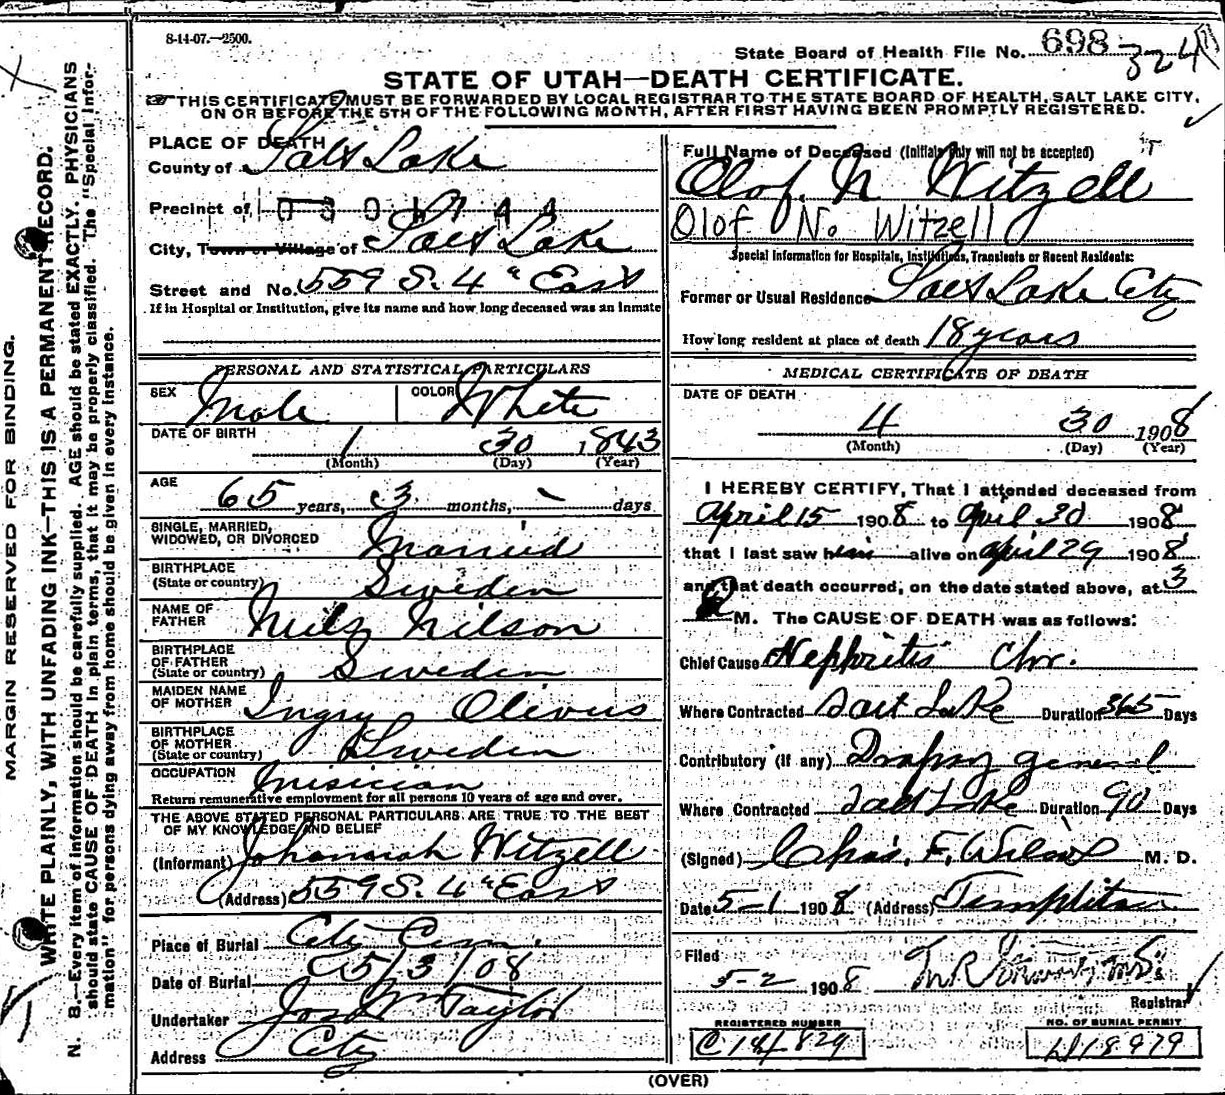 8-14-07.—2500.
State Board of Health File No. 698
324
STATE OF UTAH—DEATH CERTIFICATE.
THIS CERTIFICATE MUST BE FORWARDED BY LOCAL REGISTRAR TO THE STATE BOARD OF HEALTH, SALT LAKE CITY,
ON OR BEFORE THE 5TH OF THE FOLLOWING MONTH, AFTER FIRST HAVING BEEN PROMPTLY REGISTERED.
MARGIN RESERVED FOR BINDING.
WRITE PLAINLY, WITH UNFADING INK—THIS IS A PERMANENT RECORD.
N. B.—Every item of information should be carefully supplied. AGE should be stated EXACTLY. PHYSICIANS
should state CAUSE OF DEATH in plain terms, that it may be properly classified. The "Special Infor-
mation" for persons dying away from home should be given in every instance.
PLACE OF DEATH
County of Salt Lake
Precinct of
City, Town or Village of Salt Lake
Street and No. 559 S. 4" East
If in Hospital or Institution, give its name and how long deceased was an inmate
PERSONAL AND STATISTICAL PARTICULARS
SEX Male COLOR White
DATE OF BIRTH 1 30 1843
(Month) (Day) (Year)
AGE
65 years, 3 months, - days
SINGLE, MARRIED,
WIDOWED, OR DIVORCED Married
BIRTHPLACE
(State or country) Sweden
NAME OF
FATHER Nils Nilson
BIRTHPLACE
OF FATHER
(State or country) Sweden
MAIDEN NAME
OF MOTHER Ingry Olivus
BIRTHPLACE
OF MOTHER
(State or country) Sweden
OCCUPATION Musician
Return remunerative employment for all persons 10 years of age and over.
THE ABOVE STATED PERSONAL PARTICULARS ARE TRUE TO THE BEST
OF MY KNOWLEDGE AND BELIEF
(Informant) Johannah Witzell
(Address) 559 S. 4" East
Place of Burial City Cem.
Date of Burial 5/3/08
Undertaker Jos Wm Taylor
Address City
Full Name of Deceased (Initials only will not be accepted)
Olof. N Witzell
Olof N. Witzell
Special Information for Hospitals, Institutions, Transients or Recent Residents:
Former or Usual Residence Salt Lake City
How long resident at place of death 18 years
MEDICAL CERTIFICATE OF DEATH
DATE OF DEATH
4 30 1908
(Month) (Day) (Year)
I HEREBY CERTIFY, That I attended deceased from
April 15 1908 to April 30 1908
that I last saw him alive on April 29 1908
and that death occurred, on the date stated above, at 3
M. The CAUSE OF DEATH was as follows:
Chief Cause Nephritis Chr.
Where Contracted Salt Lake Duration 365 Days
Contributory (if any) Dropsy general
Where Contracted Salt Lake Duration 90 Days
(Signed) Chas. F. Wilcox M. D.
Date 5-1 1908 (Address) Templeton
Filed
5-2 1908
Registrar
REGISTERED NUMBER
C 18,829
NO. OF BURIAL PERMIT
D18979
(OVER)